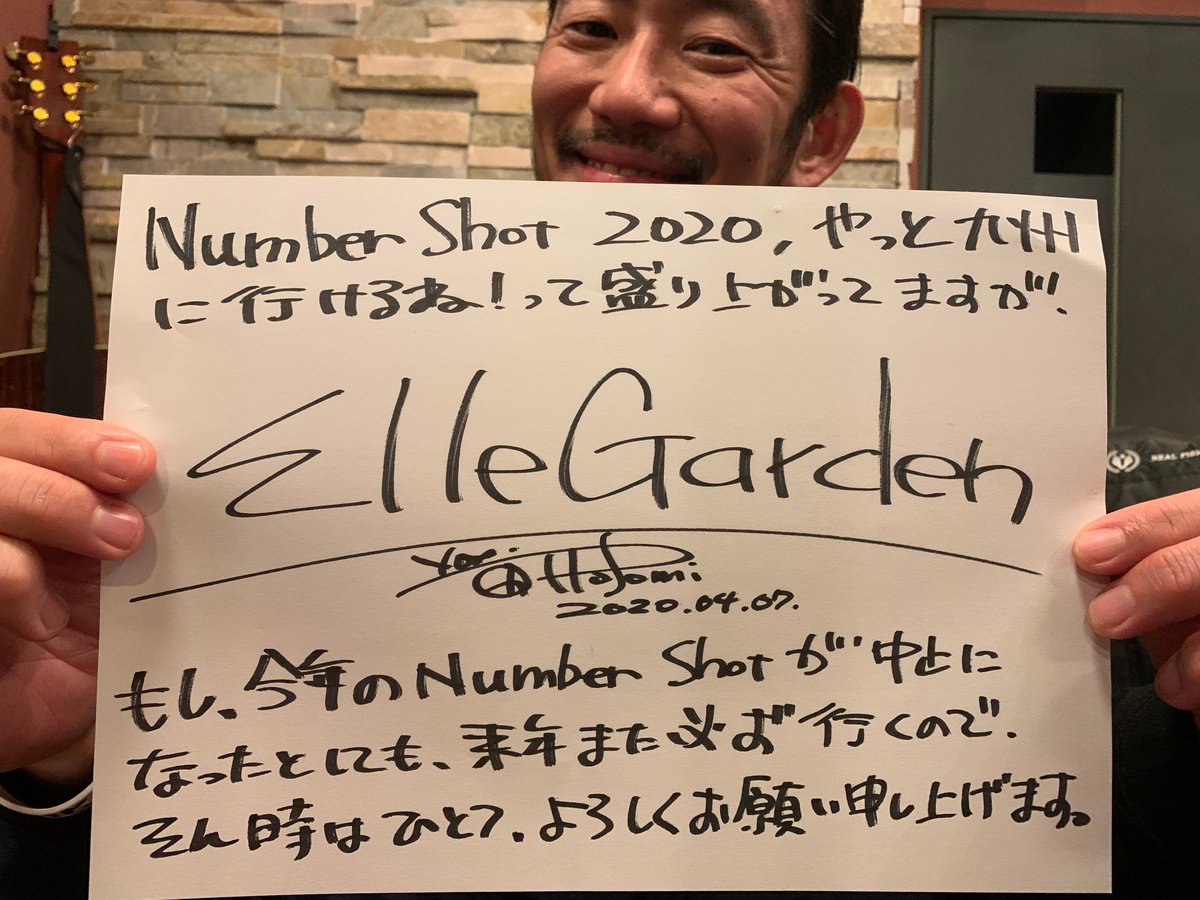 Number Shot 2020, やっと九州
に行けるね!って盛り上がってますが、
ElleGarden
Hosomi
2020.04.07.
もし、今年のNumber Shotが中止に
なったとしても、来年また必ず行くので、
そん時はひとつ、よろしくお願い申し上げます。
REAL